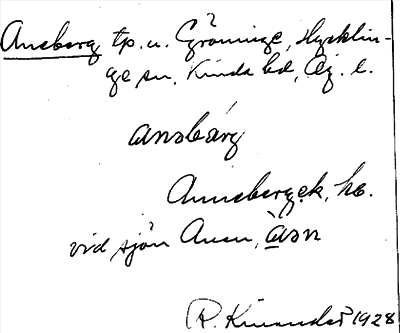 Ansberg tp. u. Gröninge, Hycklin-
ge sn, Kinda hd, Ög. l.
ansbärg
Annsbergek, hs.
vid sjön Ansn, àsn
R. Kinander 1928